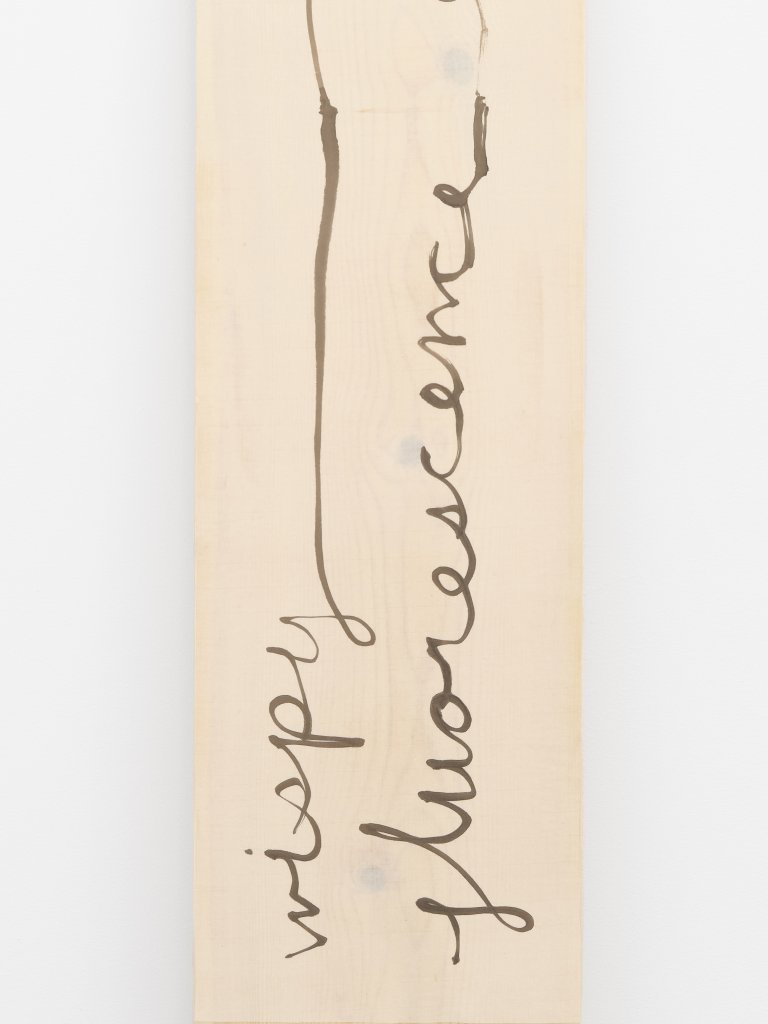 wispy
fluorescence